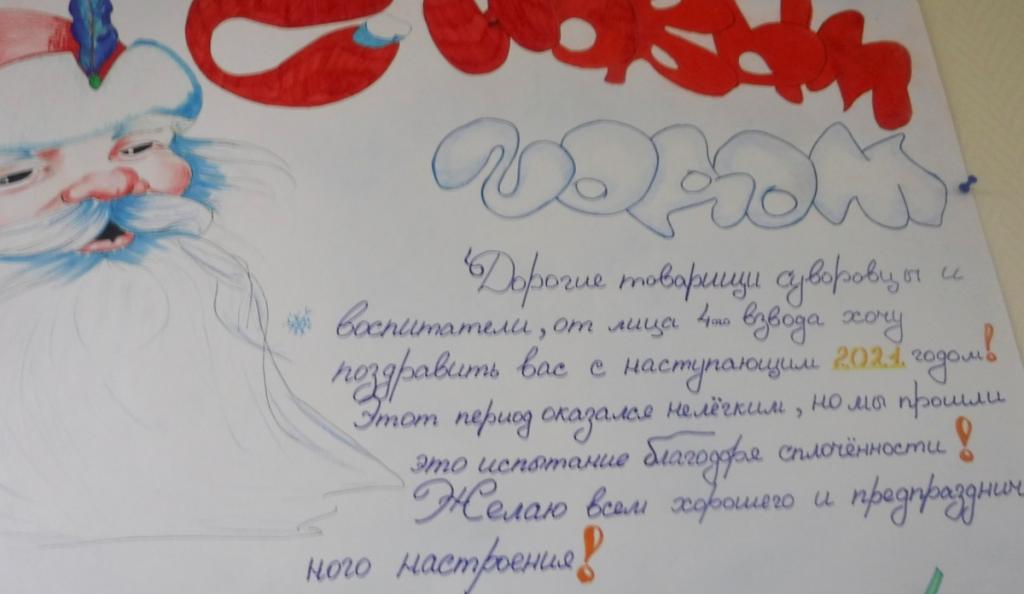 С
Годом
"Дорогие товарищи суворовцы и
воспитатели, от лица 4ого взвода хочу
поздравить вас с наступающим 2021 годом!
Этот период оказался нелёгким, но мы прошли
это испытание благодоря сплочённости!
Желаю всем хорошего и предпразднич
ного настроения!